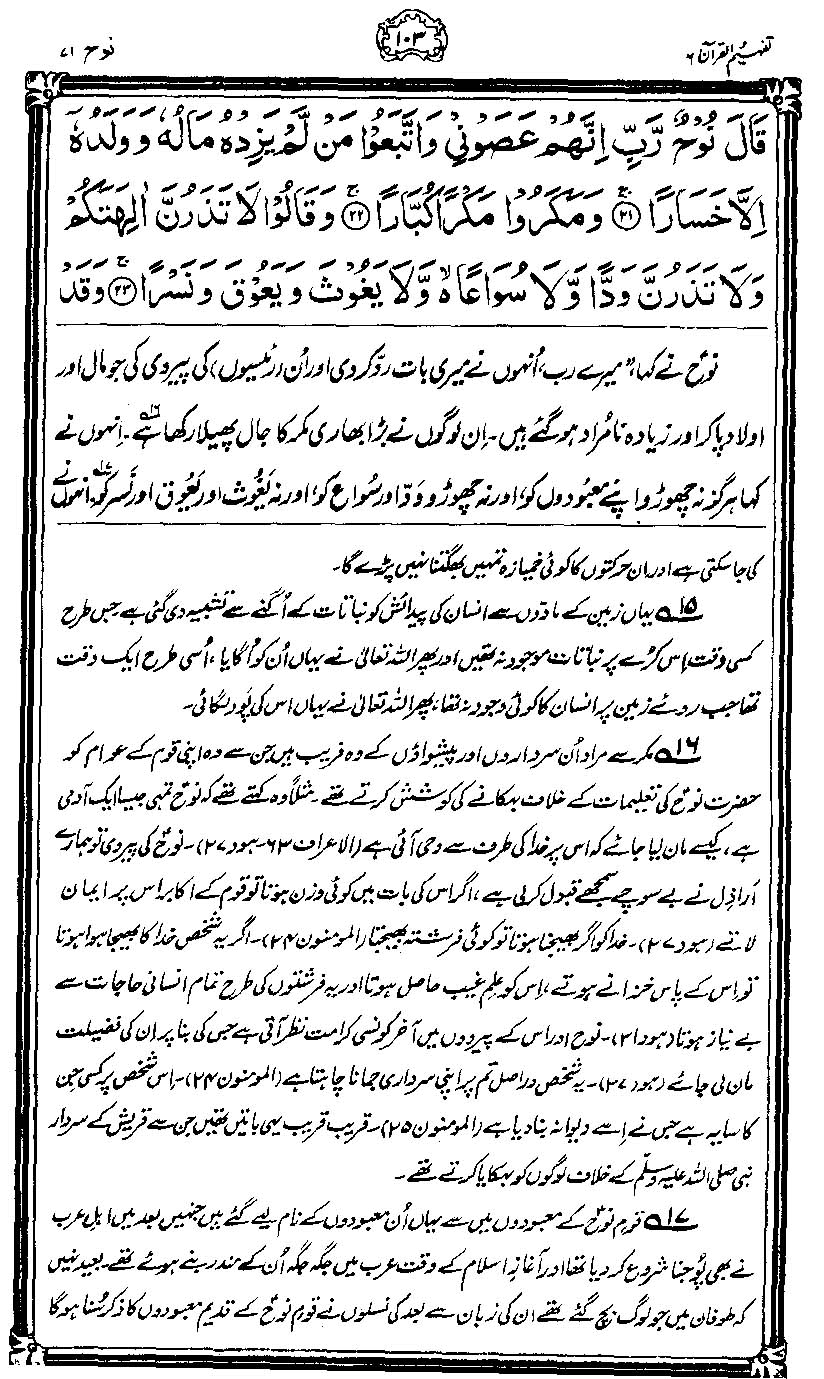 تفہیم القرآن ۶
۱۰۳
نوح ۷۱
قَالَ نُوْحٌ رَّبِّ اِنَّهُمْ عَصَوْنِيْ وَاتَّبَعُوْا مَنْ لَّمْ يَزِدْهُ مَالُهٗ وَوَلَدُهٗٓ
اِلَّا خَسَارًا ۚ﴿۲۱﴾ وَمَكَرُوْا مَكْرًا كُبَّارًا ۚ﴿۲۲﴾ وَقَالُوْا لَا تَذَرُنَّ اٰلِهَتَكُمْ
وَلَا تَذَرُنَّ وَدًّا وَّلَا سُوَاعًا ۙ وَّلَا يَغُوْثَ وَيَعُوْقَ وَنَسْرًا ۚ﴿۲۳﴾ وَقَدْ
نوحؑ نے کہا، ”میرے رب، اُنہوں نے میری بات رد کر دی اور اُن (رئیسوں) کی پیروی کی جو مال اور
اولاد پا کر اور زیادہ نامُراد ہو گئے ہیں۔ اِن لوگوں نے بڑا بھاری مکر کا جال پھیلا رکھا ہے۱۶۔ اِنہوں نے
کہا ہرگز نہ چھوڑو اپنے معبودوں کو، اور نہ چھوڑو وَدّ اور سُواع کو، اور نہ یَغُوث اور یَعُوق اور نَسر کو۱۷۔ انہوں نے
کی جا سکتی ہے اور ان حرکتوں کا کوئی خمیازہ تمہیں بھگتنا نہیں پڑے گا۔
۱۵؎ یہاں زمین کے مادّوں سے انسان کی پیدائش کو نباتات کے اُگنے سے تشبیہ دی گئی ہے۔ جس طرح
کسی وقت اِس کرّے پر نباتات موجود نہ تھیں اور پھر اللہ تعالیٰ نے یہاں اُن کو اُگایا، اُسی طرح ایک وقت
تھا جب روئے زمین پر انسان کا کوئی وجود نہ تھا، پھر اللہ تعالیٰ نے یہاں اس کی پَود لگائی۔
۱۶؎ مکر سے مراد اُن سرداروں اور پیشواؤں کے وہ فریب ہیں جن سے وہ اپنی قوم کے عوام کو
حضرت نوحؑ کی تعلیمات کے خلاف بہکانے کی کوشش کرتے تھے۔ مثلاً وہ کہتے تھے کہ نوحؑ تمہی جیسا ایک آدمی
ہے، کیسے مان لیا جائے کہ اس پر خدا کی طرف سے وحی آئی ہے (الاعراف ۶۳۔ ہود ۲۷)۔ نوحؑ کی پیروی تو ہمارے
اَراذِل نے بے سوچے سمجھے قبول کر لی ہے، اگر اس کی بات میں کوئی وزن ہوتا تو قوم کے اکابر اس پر ایمان
لاتے (ہود ۲۷)۔ خدا کو اگر بھیجنا ہوتا تو کوئی فرشتہ بھیجتا (المومنون ۲۴)۔ اگر یہ شخص خدا کا بھیجا ہوا ہوتا
تو اس کے پاس خزانے ہوتے، اِس کو علمِ غیب حاصل ہوتا اور یہ فرشتوں کی طرح تمام انسانی حاجات سے
بے نیاز ہوتا (ہود ۳۱)۔ نوح اور اس کے پیروؤں میں آخر کونسی کرامت نظر آتی ہے جس کی بنا پر ان کی فضیلت
مان لی جائے (ہود ۲۷)۔ یہ شخص دراصل تم پر اپنی سرداری جمانا چاہتا ہے (المومنون ۲۴)۔ اِس شخص پر کسی جن
کا سایہ ہے جس نے اِسے دیوانہ بنا دیا ہے (المومنون ۲۵)۔ قریب قریب یہی باتیں تھیں جن سے قریش کے سردار
نبی صلی اللہ علیہ وسلم کے خلاف لوگوں کو بہکایا کرتے تھے۔
۱۷؎ قوم نوحؑ کے معبودوں میں سے یہاں اُن معبودوں کے نام لیے گئے ہیں جنہیں بعد میں اہل عرب
نے بھی پُوجنا شروع کر دیا تھا اور آغازِ اسلام کے وقت عرب میں جگہ جگہ اُن کے مندر بنے ہوئے تھے۔ بعید نہیں
کہ طوفان میں جو لوگ بچ گئے تھے ان کی زبان سے بعد کی نسلوں نے قوم نوحؑ کے قدیم معبودوں کا ذکر سُنا ہوگا